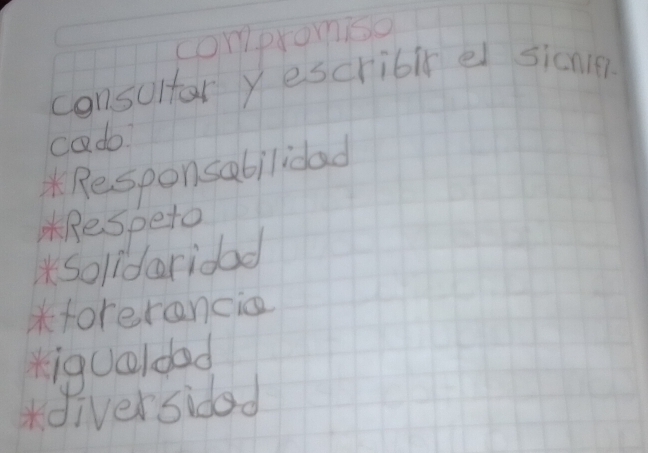 compromiso
consultar y escribir el sicnifi-
cado:
*Responsabilidad
*Respeto
*Solidaridad
*torerancia
*igualdad
*diversidad